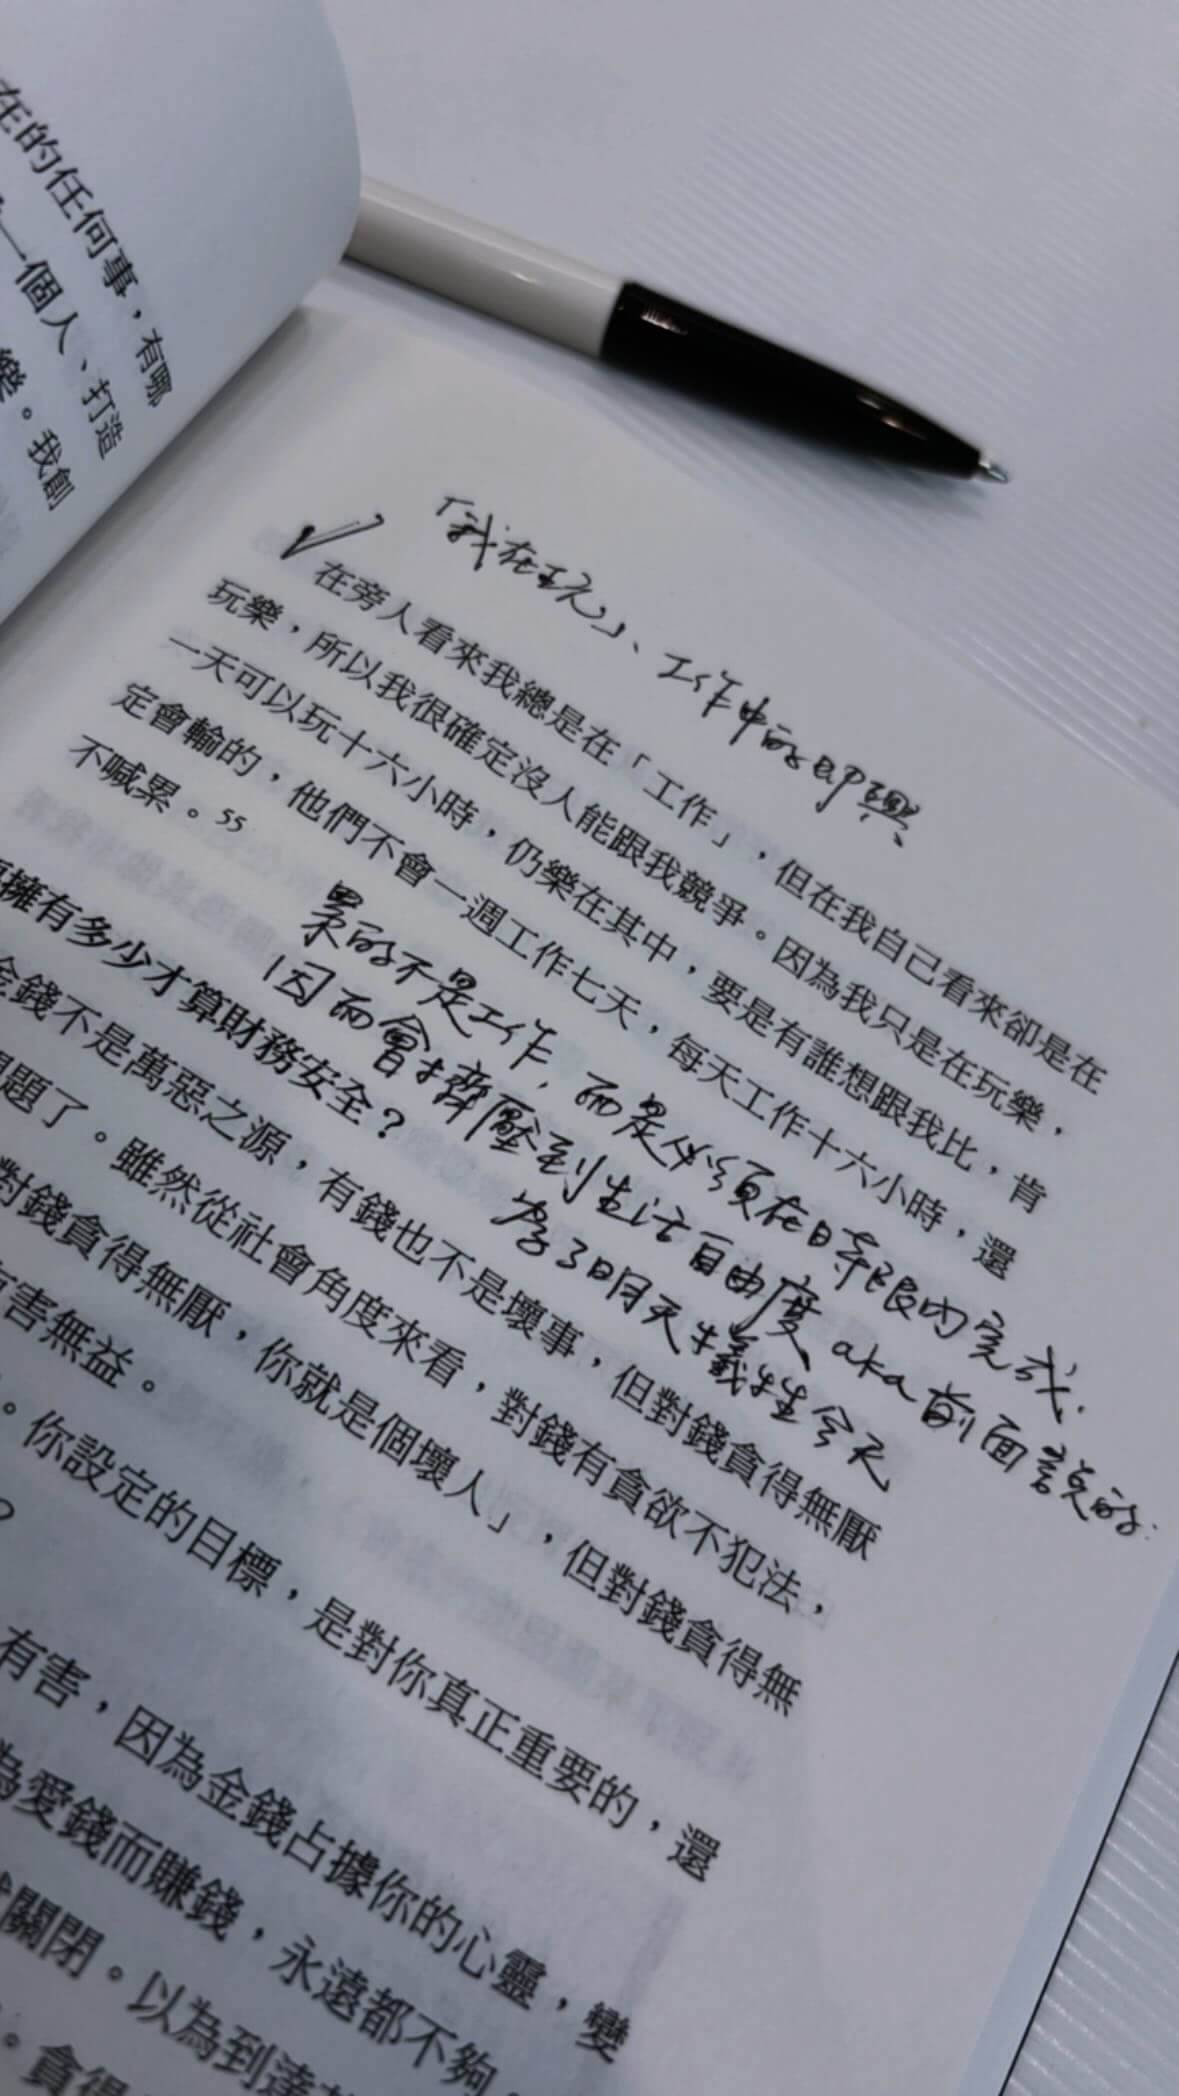 在的任何事，有哪
一個人、打造
樂。我創
「我在玩」、工作中的即興
在旁人看來我總是在「工作」，但在我自己看來卻是在
玩樂，所以我很確定沒人能跟我競爭。因為我只是在玩樂，
一天可以玩十六小時，仍樂在其中，要是有誰想跟我比，肯
定會輸的，他們不會一週工作七天，每天工作十六小時，還
不喊累。55
累的不是工作，而是必須在時限內完成.
因而會擠壓到生活自由度 aka 前面說的:
為了明天犧牲今天
擁有多少才算財務安全？
金錢不是萬惡之源，有錢也不是壞事，但對錢貪得無厭
問題了。雖然從社會角度來看，對錢有貪欲不犯法，
對錢貪得無厭，你就是個壞人」，但對錢貪得無
有害無益。
。你設定的目標，是對你真正重要的，還
？
有害，因為金錢占據你的心靈，變
為愛錢而賺錢，永遠都不夠。
關閉。以為到達
。貪得